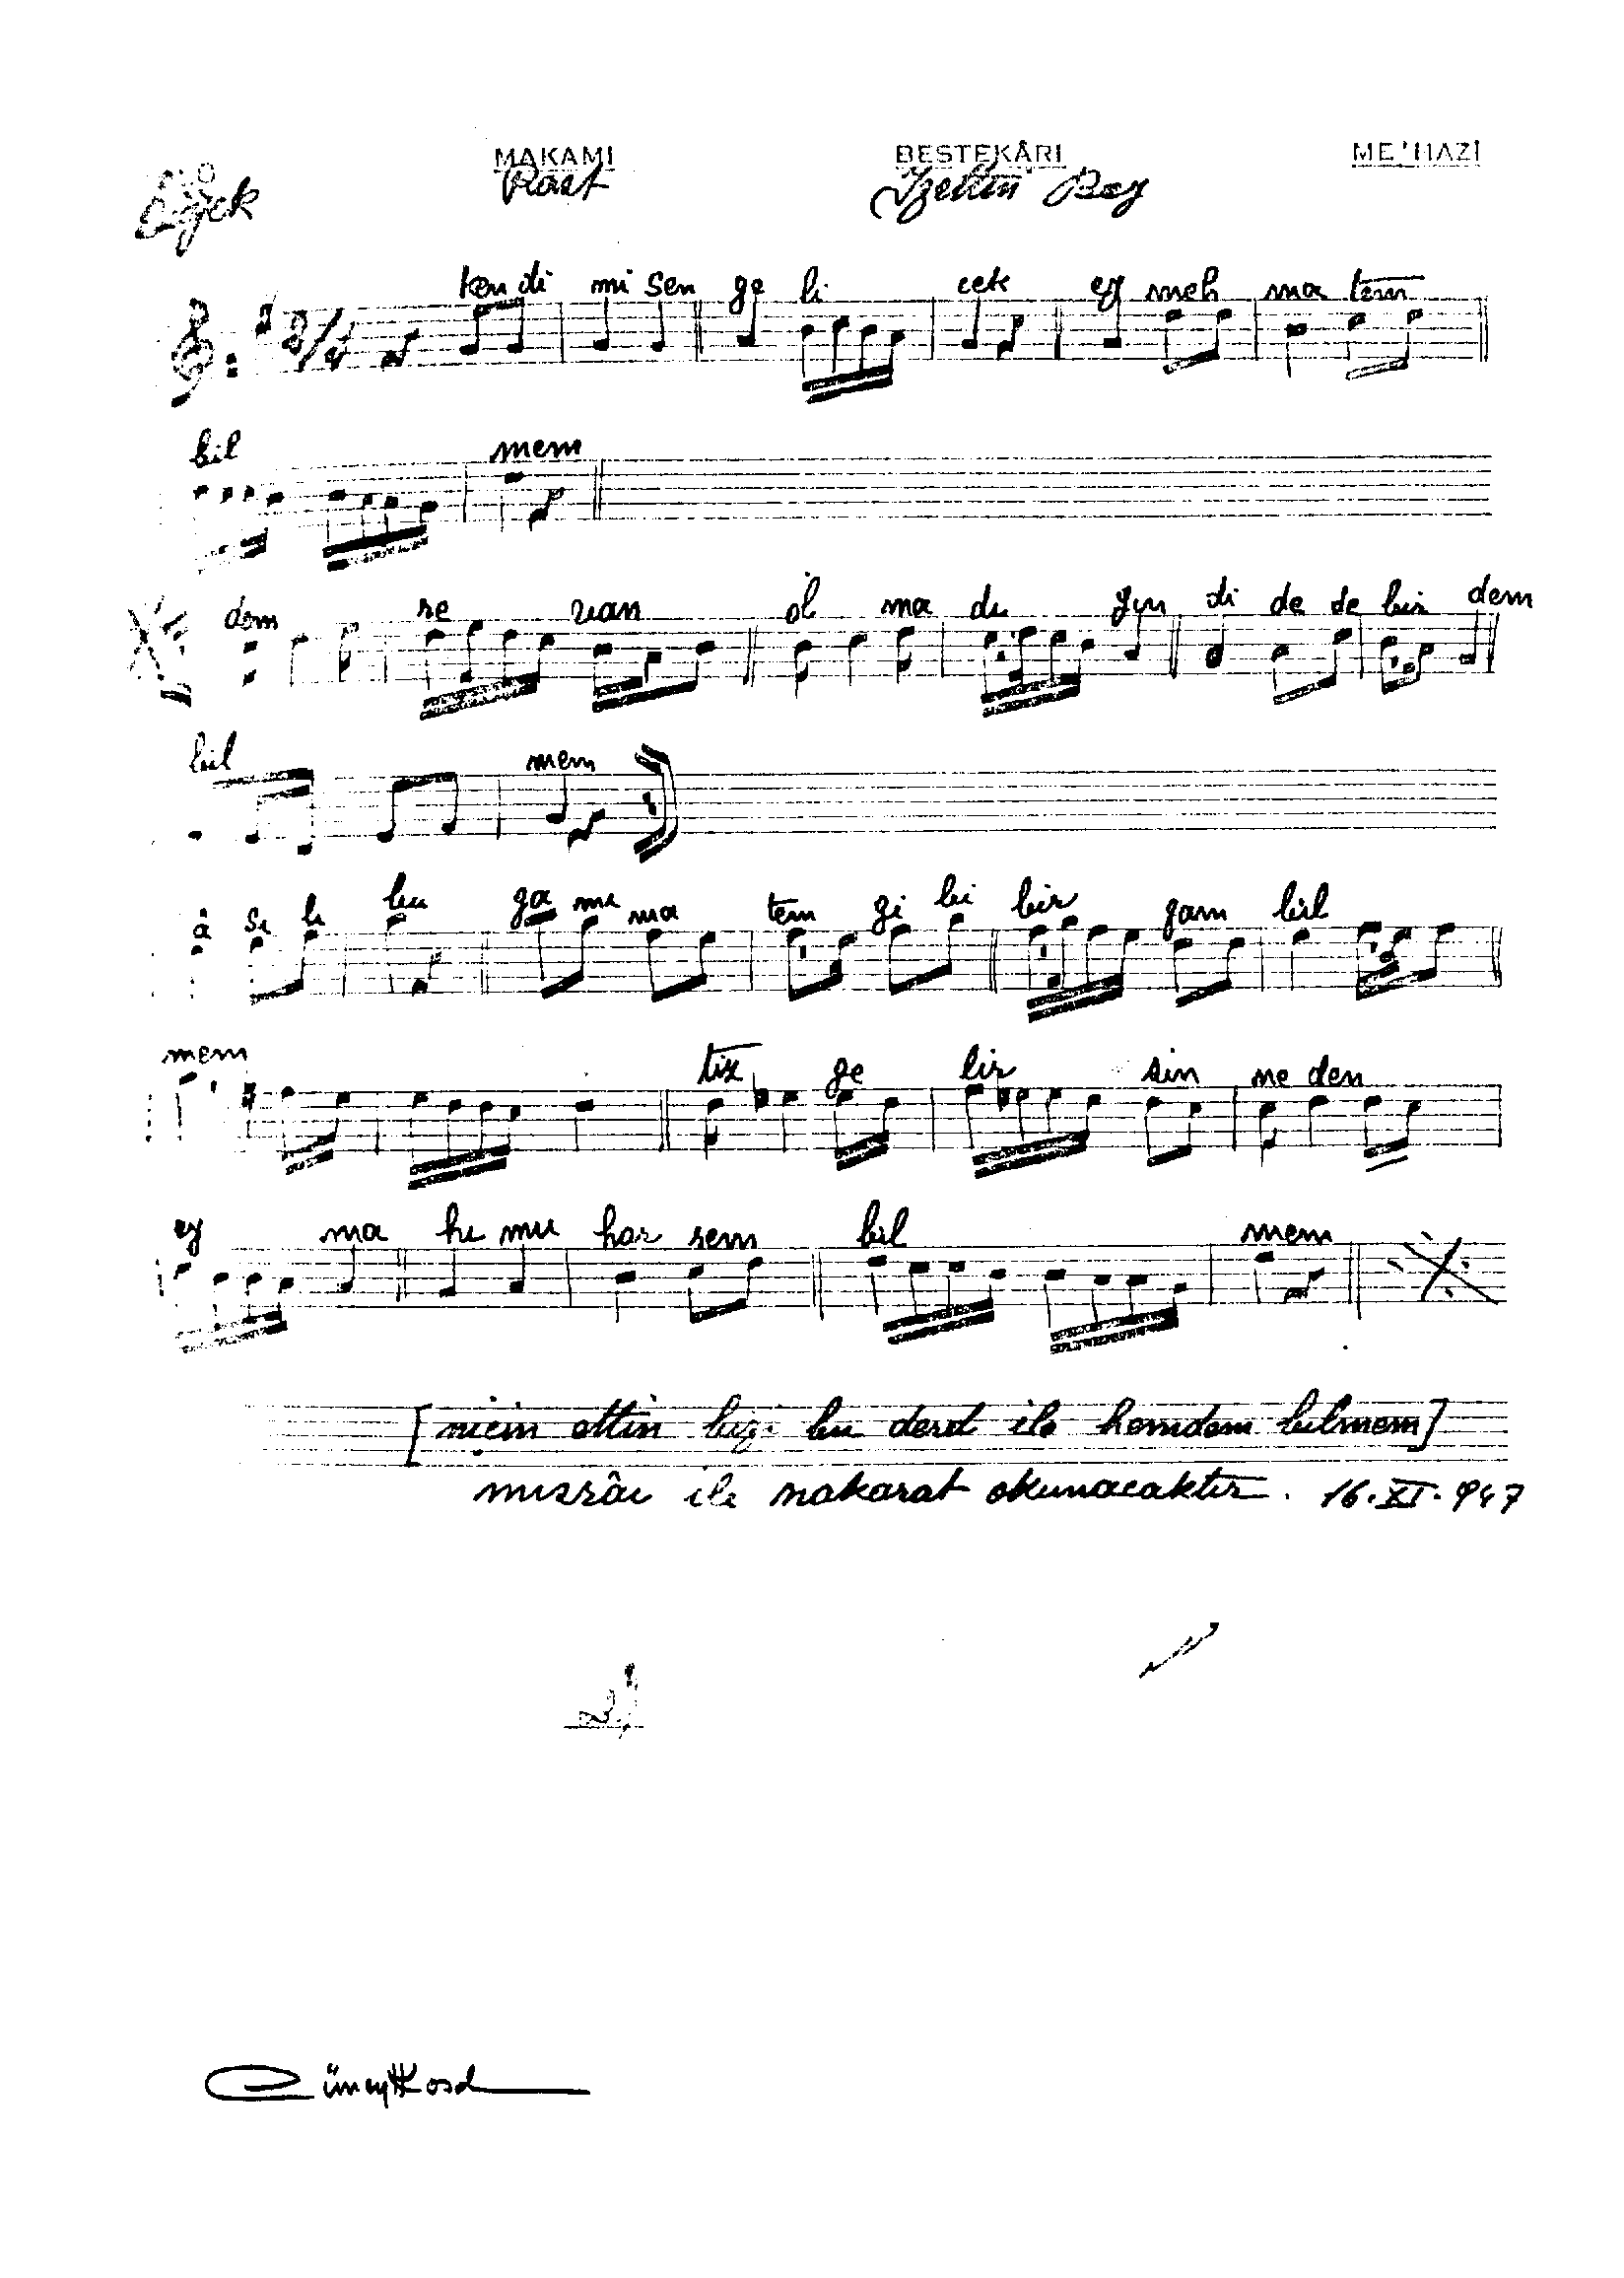 MAKAMI BESTEKÂRI ME'HAZİ
Rast İzettin Bey
ken di mi sen ge li cek ey meh ma tem
bil mem
dem re van ol ma du şim di de de bir dem
bil mem
â si li bu ga mı ma tem gi bi bir gam bil
mem tiz ge lir sin ne den
ey ma hı mu har rem bil mem
[niçin ettin bizi bu derd ile hemdem bilmem]
mısrâı ile nakarat okunacaktır. 16.XI.947